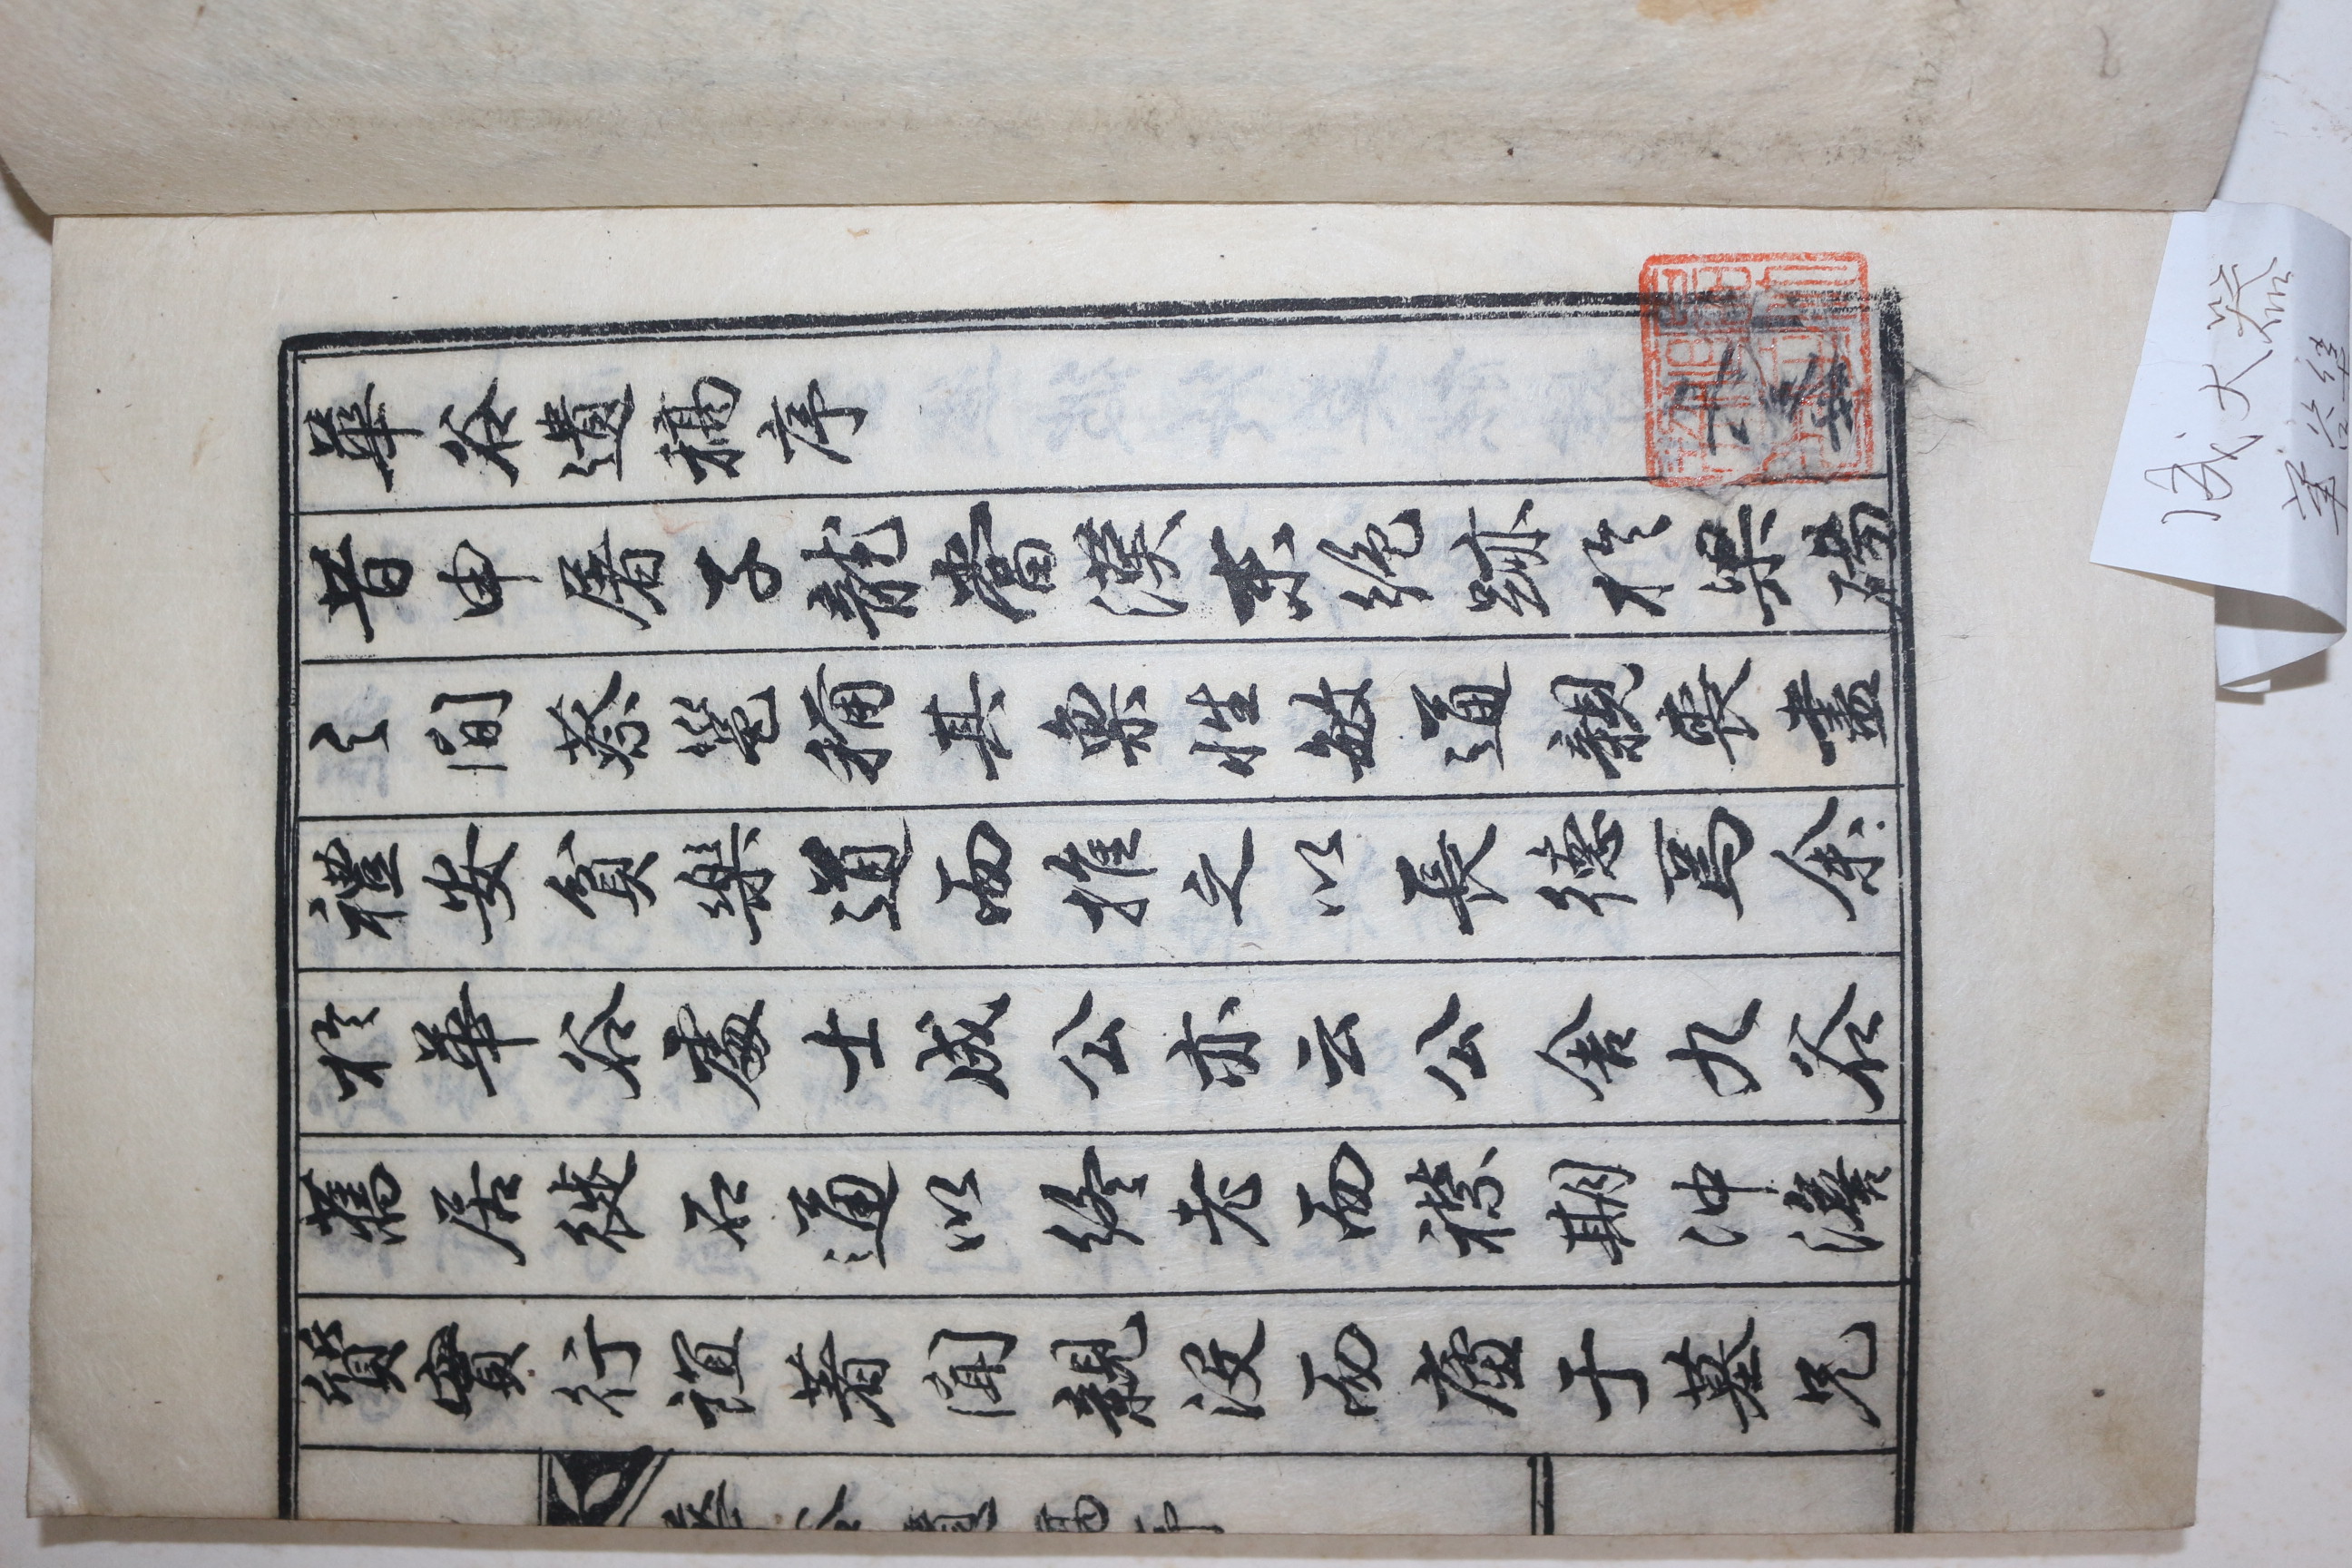 華谷遺稿序
昔申屠子龍當漢末絶跡於梁碭
之間蔡邕稱其稟性敏通親喪盡
禮安貧樂道而推之以長德焉余
於華谷處士成公亦云公舍九谷
舊居徙石通以終老而襟期沖澹
質實行誼著聞親沒而廬于墓兄
華谷遺稿序
成大器
華谷集